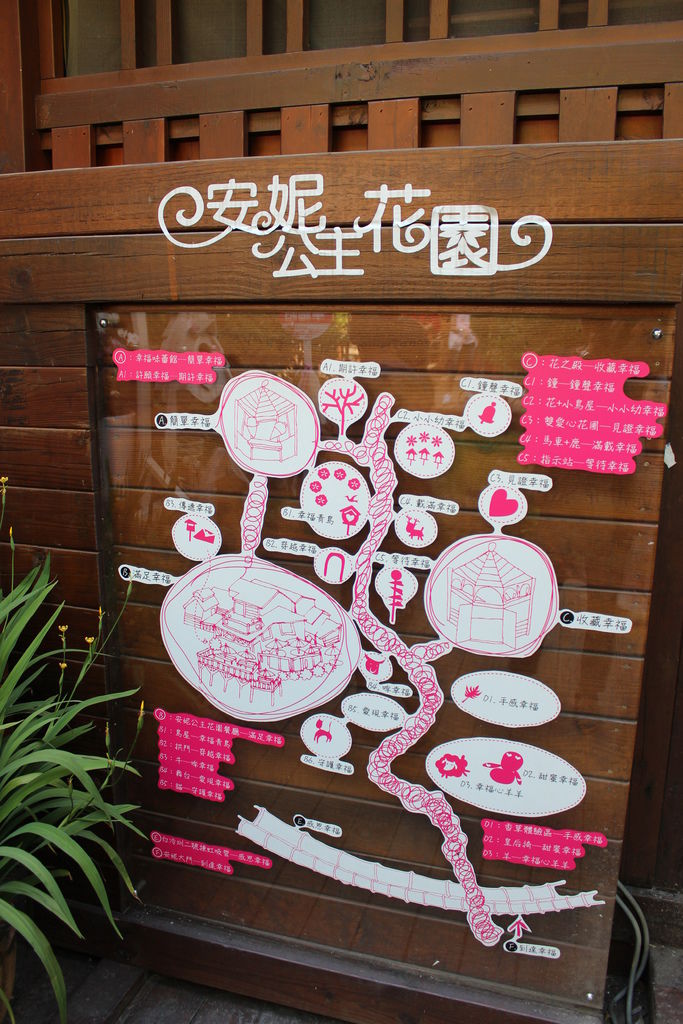 安妮公主花園
A：幸福味蕾館—簡單幸福
A1：許願幸福—期許幸福
A1. 期許幸福
C：花之殿—收藏幸福
C1：鐘—鐘聲幸福
C2：花+小鳥屋—小小幼幸福
C3：雙愛心花園—見證幸福
C4：馬車+鹿—滿載幸福
C5：指示站—等待幸福
C1. 鐘聲幸福
A 簡單幸福
C2. 小小幼幸福
C3. 見證幸福
B3. 傳遞幸福
B1. 幸福青鳥
C4. 載滿幸福
B2. 穿越幸福
C5. 等待幸福
B 滿足幸福
C 收藏幸福
B4. 哞幸福
D1. 手感幸福
B5. 愛現幸福
B：安妮公主花園餐廳—滿足幸福
B1：鳥屋—幸福青鳥
B2：拱門—穿越幸福
B3：牛—哞幸福
B4：舞台—愛現幸福
B5：貓—守護幸福
B6. 守護幸福
D2. 甜蜜幸福
D3. 幸福心羊羊
E 感恩幸福
D1：香草體驗區—手感幸福
D2：皇后椅—甜蜜幸福
D3：羊—幸福心羊羊
E：白冷圳二號
F：安妮大門—到達幸福
F 到達幸福